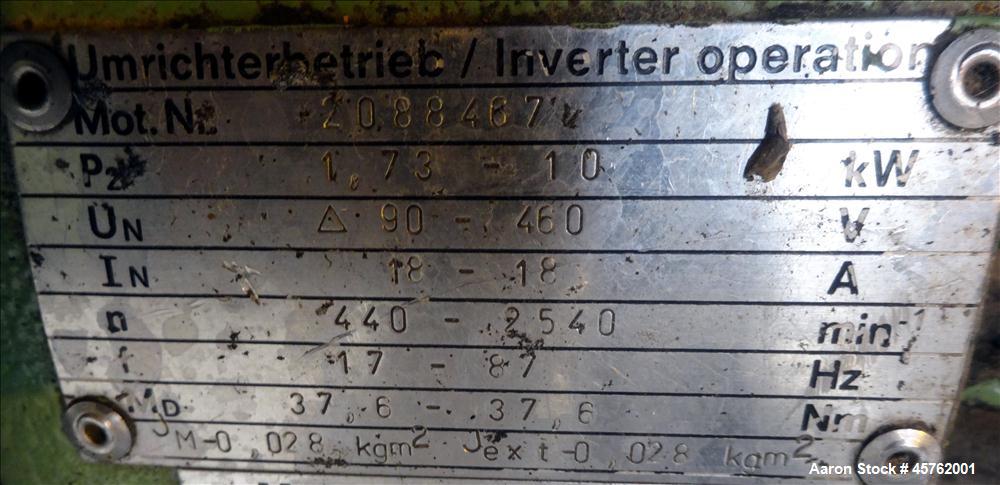 Umrichterbetrieb / Inverter operation
Mot. Nr. 2088467
P2 1,73 - 10 kW
UN △ 90 - 460 V
IN 18 - 18 A
n 440 - 2540 min-1
f 17 - 87 Hz
MD 37,6 - 37,6 Nm
JM-0,028 kgm2 Jext-0,028 kgm2
Aaron Stock # 45762001